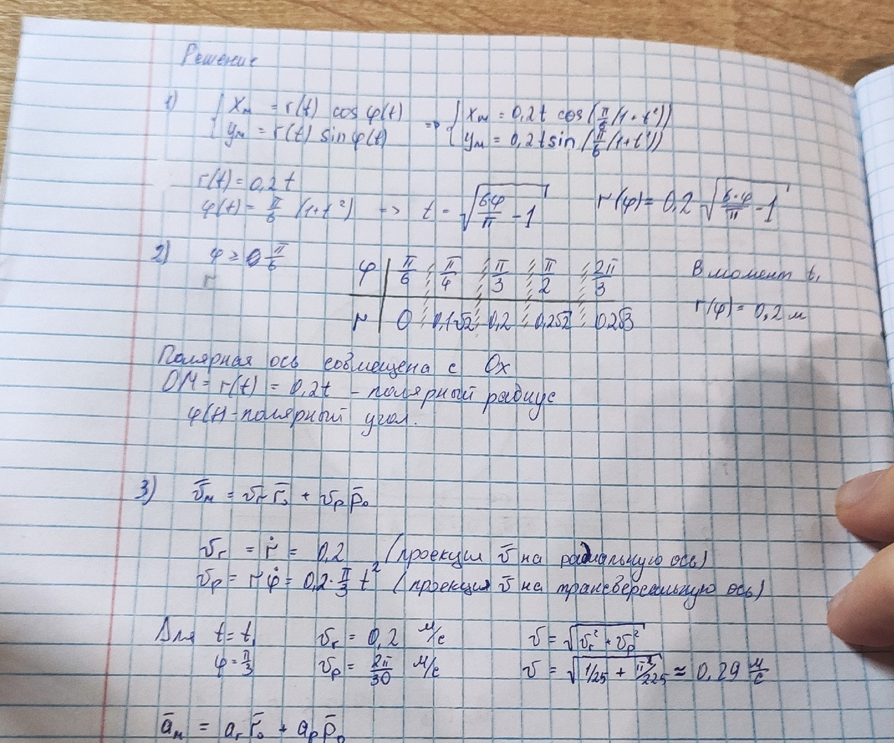 Решение
1) { xₘ = r(t) cos φ(t) => { xₘ = 0,2t cos(π/6(1+t²))
{ yₘ = r(t) sin φ(t) { yₘ = 0,2t sin(π/6(1+t²))
r(t) = 0,2t
φ(t) = π/6 (1+t²) => t = √(6·φ/π - 1) r(φ) = 0,2 √(6·φ/π - 1)
2) φ ≥ π/6
φ | π/6 π/4 π/3 π/2 2π/3 В момент t₁
r | 0 0,1√2 0,2 0,2√2 0,2√3 r(φ) = 0,2 м
Полярная ось совмещена с Ox
OM = r(t) = 0,2t - полярный радиус
φ(t) - полярный угол.
3) v̄ₘ = vᵣ r̄₀ + vₚ p̄₀
vᵣ = ṙ = 0,2 (проекция v̄ на радиальную ось)
vₚ = r φ̇ = 0,2·π/3 t² (проекция v̄ на трансверсальную ось)
Для t = t₁ vᵣ = 0,2 м/с v = √(vᵣ² + vₚ²)
φ = π/3 vₚ = 2π/30 м/с v = √(1/25 + π²/225) ≈ 0,29 м/с
āₘ = aᵣ r̄₀ + aₚ p̄₀